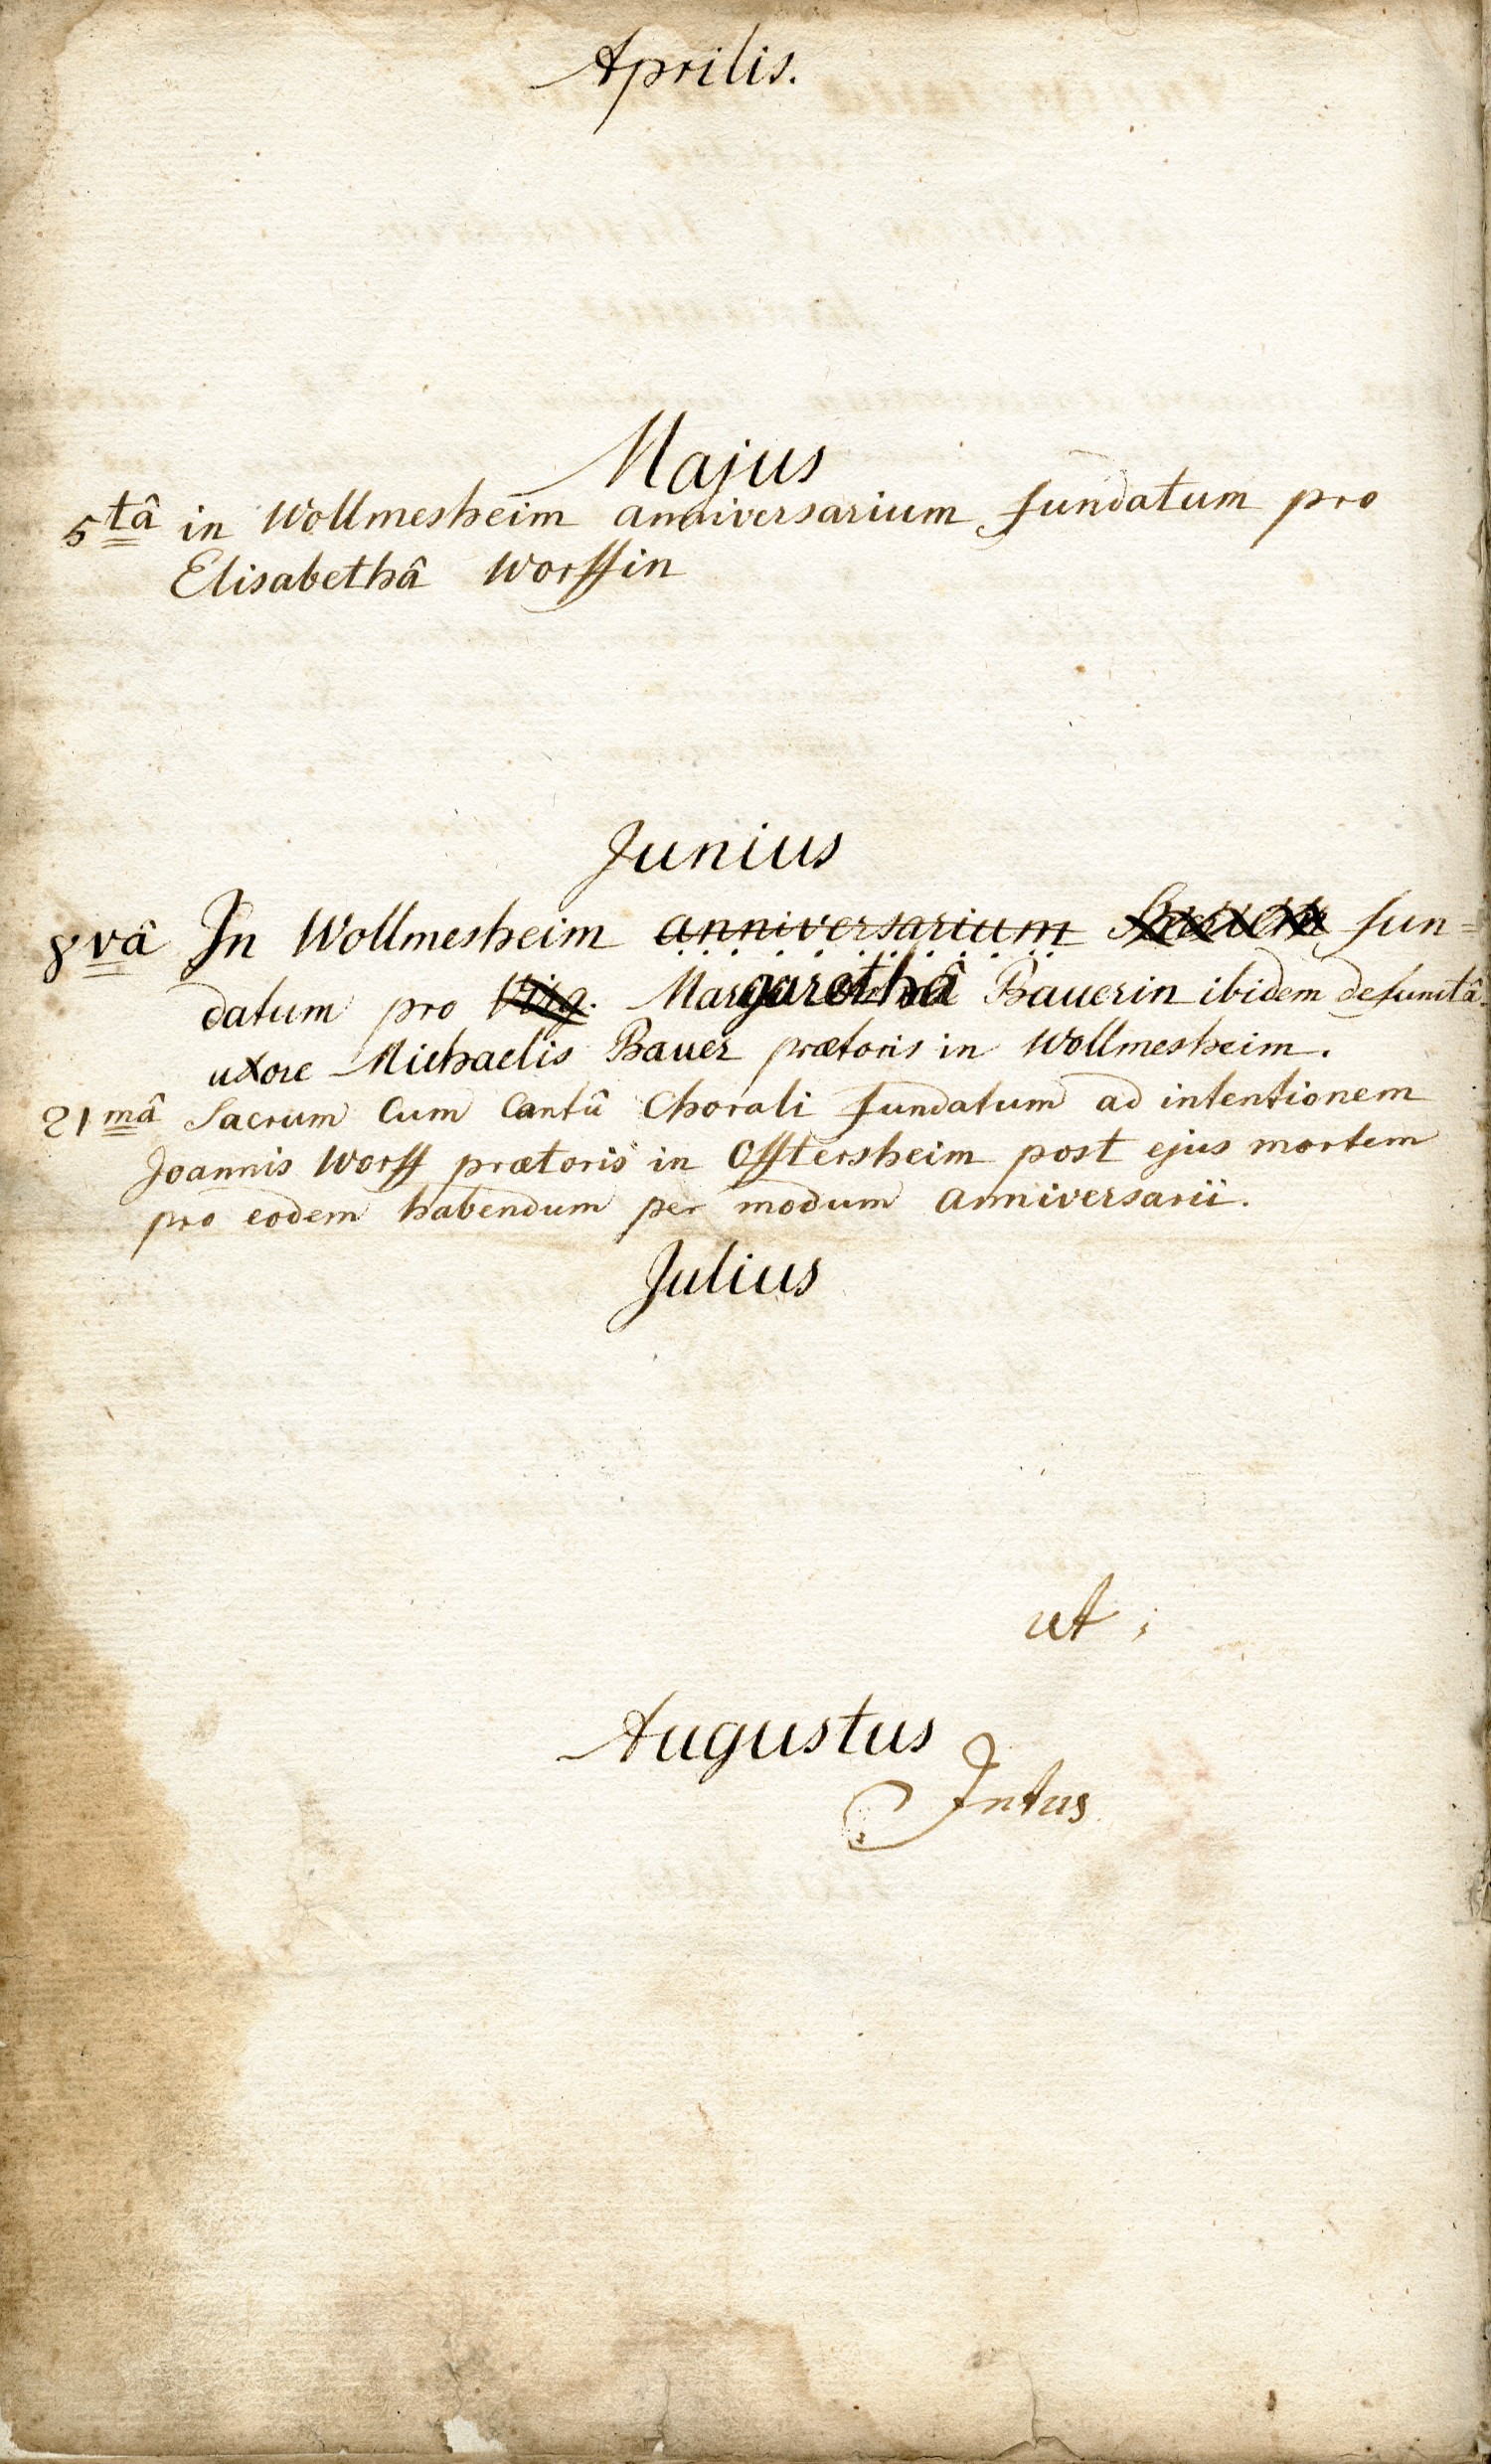 Aprilis.
Majus
5tâ in Wollmesheim anniversarium fundatum pro
Elisabethâ Worffin
Junius
8vâ In Wollmesheim anniversarium fun=
datum pro Virg. Margarethâ Bauerin ibidem defunctâ
uxore Michaelis Bauer prætoris in Wollmesheim.
21mâ Sacrum Cum Cantû Chorali fundatum ad intentionem
Joannis Worff prætoris in Offtersheim post ejus mortem
pro eodem habendum per modum anniversarii.
Julius
ut ;
Augustus
Intus